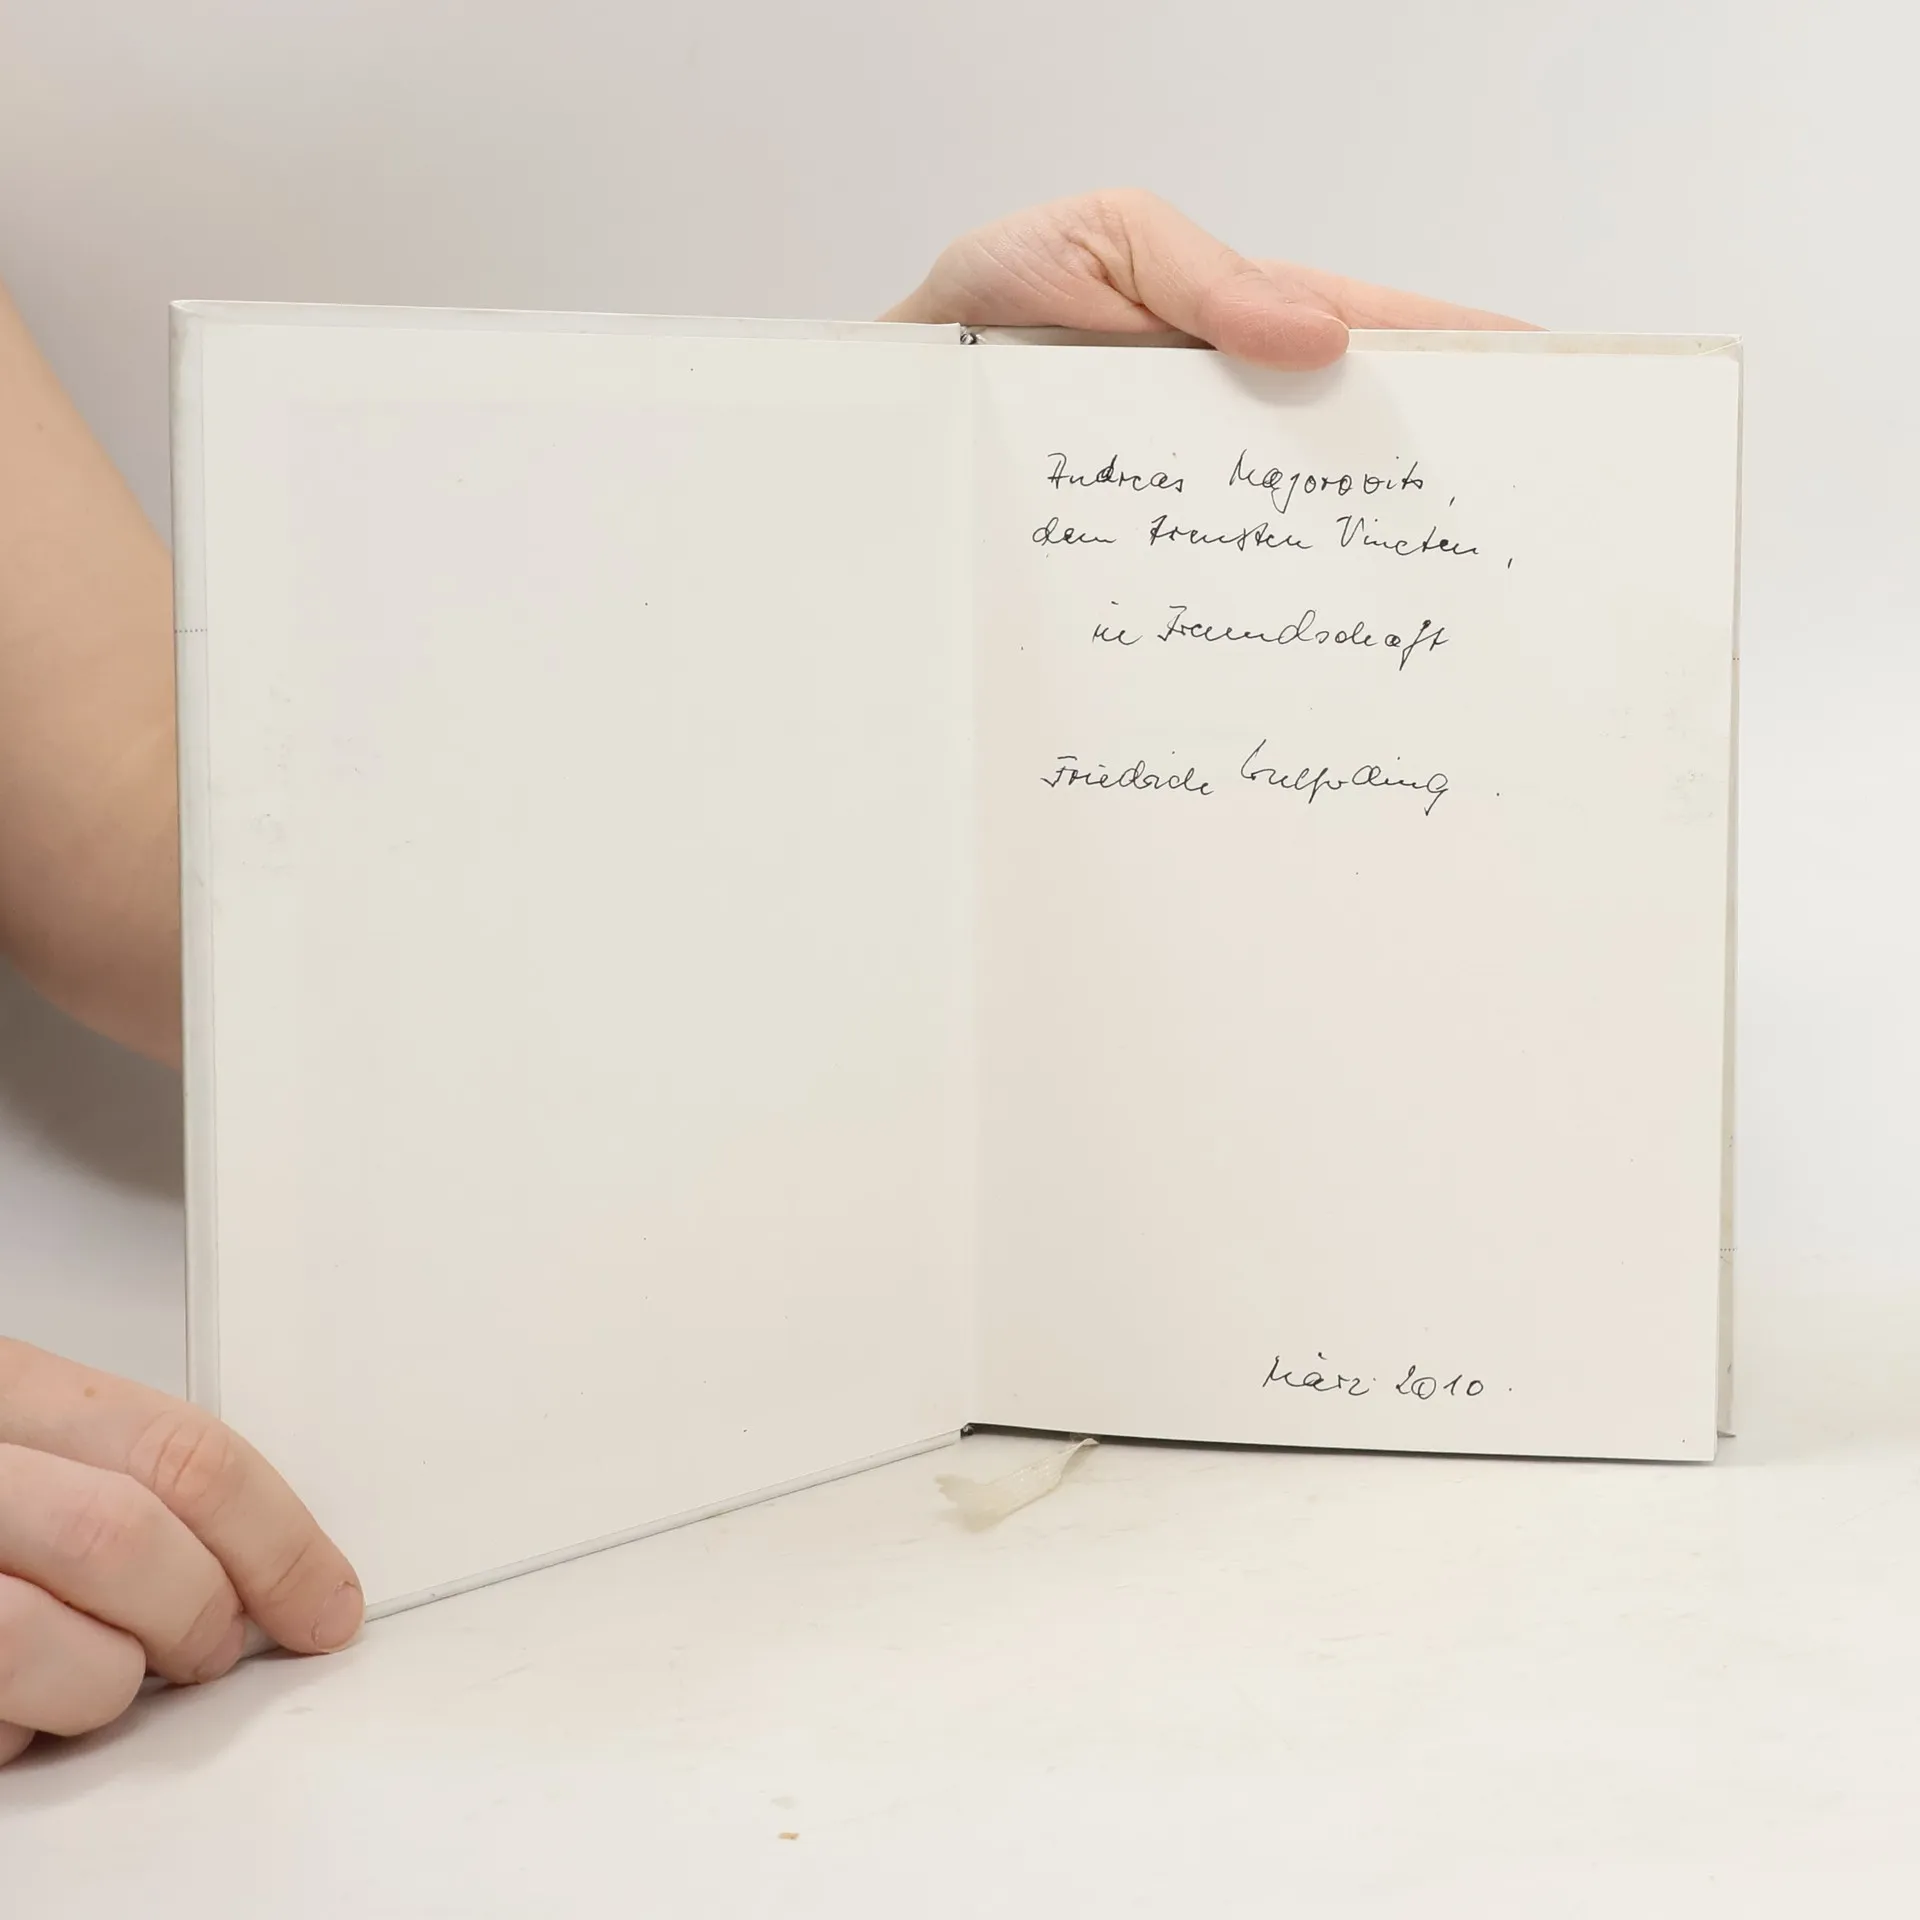 Andreas Majorovits,
dem treusten Vincten,
in Freundschaft
Friedrich
März 2010.